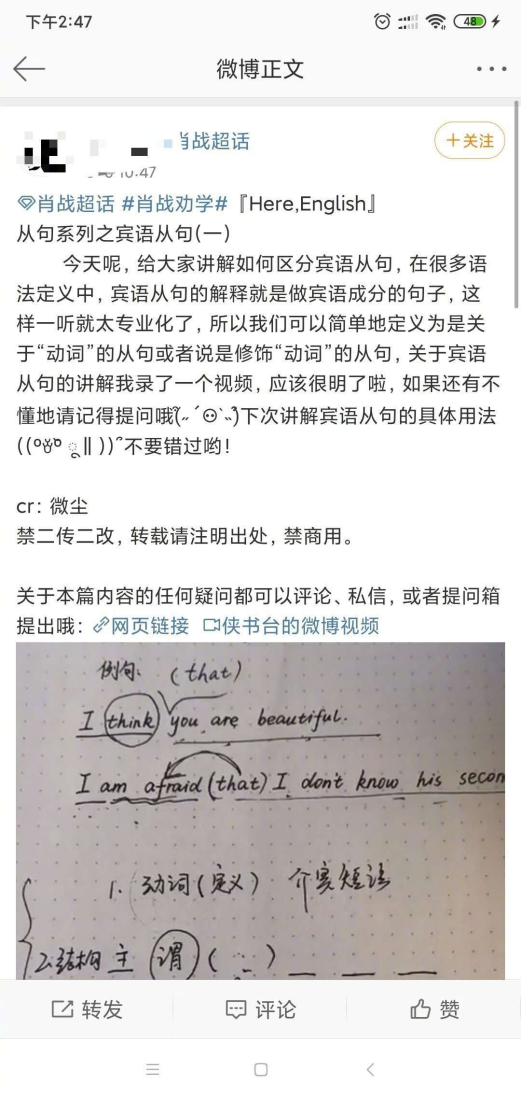 下午2:47
48
微博正文
肖战超话
10:47
+关注
肖战超话 #肖战劝学#『Here,English』
从句系列之宾语从句(一)
今天呢，给大家讲解如何区分宾语从句，在很多语
法定义中，宾语从句的解释就是做宾语成分的句子，这
样一听就太专业化了，所以我们可以简单地定义为是关
于“动词”的从句或者说是修饰“动词”的从句，关于宾语
从句的讲解我录了一个视频，应该很明了啦，如果还有不
懂地请记得提问哦 下次讲解宾语从句的具体用法
不要错过哟！
cr：微尘
禁二传二改，转载请注明出处，禁商用。
关于本篇内容的任何疑问都可以评论、私信，或者提问箱
提出哦：网页链接 侠书台的微博视频
例句: (that)
I think you are beautiful.
I am afraid (that) I don't know his secon
1. 动词(定义) 介宾短语
2.结构 主 谓 ( )
转发
评论
赞